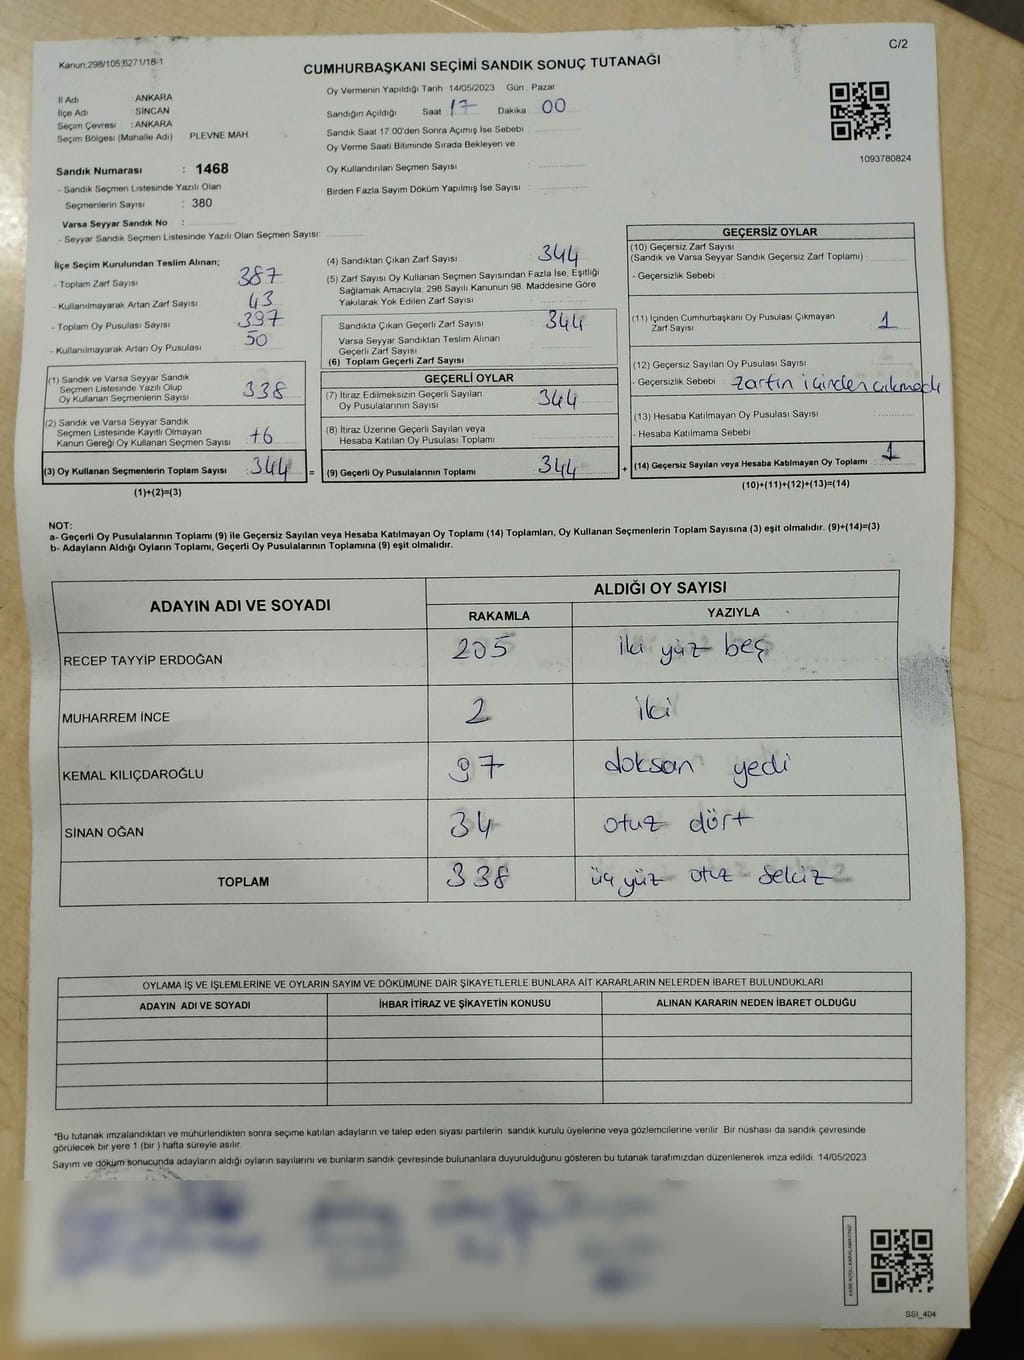 C/2
Kanun;298/105,6271/18-1
CUMHURBAŞKANI SEÇİMİ SANDIK SONUÇ TUTANAĞI
İl Adı : ANKARA
İlçe Adı : SİNCAN
Seçim Çevresi : ANKARA
Seçim Bölgesi (Mahalle Adı) PLEVNE MAH.
Sandık Numarası : 1468
- Sandık Seçmen Listesinde Yazılı Olan
Seçmenlerin Sayısı : 380
Varsa Seyyar Sandık No :
- Seyyar Sandık Seçmen Listesinde Yazılı Olan Seçmen Sayısı:
Oy Vermenin Yapıldığı Tarih 14/05/2023 Gün : Pazar
Sandığın Açıldığı Saat 17 Dakika 00
Sandık Saat 17:00'den Sonra Açımış İse Sebebi
Oy Verme Saati Bitiminde Sırada Bekleyen ve
Oy Kullandırılan Seçmen Sayısı :
Birden Fazla Sayım Döküm Yapılmış İse Sayısı :
1093780824
İlçe Seçim Kurulundan Teslim Alınan;
- Toplam Zarf Sayısı : 387
- Kullanılmayarak Artan Zarf Sayısı : 43
- Toplam Oy Pusulası Sayısı : 397
- Kullanılmayarak Artan Oy Pusulası : 50
(1) Sandık ve Varsa Seyyar Sandık
Seçmen Listesinde Yazılı Olup
Oy Kullanan Seçmenlerin Sayısı : 338
(2) Sandık ve Varsa Seyyar Sandık
Seçmen Listesinde Kayıtlı Olmayan
Kanun Gereği Oy Kullanan Seçmen Sayısı : +6
(3) Oy Kullanan Seçmenlerin Toplam Sayısı : 344 =
(1)+(2)=(3)
(4) Sandıktan Çıkan Zarf Sayısı : 344
(5) Zarf Sayısı Oy Kullanan Seçmen Sayısından Fazla İse, Eşitliği
Sağlamak Amacıyla; 298 Sayılı Kanunun 98. Maddesine Göre
Yakılarak Yok Edilen Zarf Sayısı :
Sandıkta Çıkan Geçerli Zarf Sayısı : 344
Varsa Seyyar Sandıktan Teslim Alınan
Geçerli Zarf Sayısı :
(6) Toplam Geçerli Zarf Sayısı
GEÇERLİ OYLAR
(7) İtiraz Edilmeksizin Geçerli Sayılan
Oy Pusulalarının Sayısı : 344
(8) İtiraz Üzerine Geçerli Sayılan veya
Hesaba Katılan Oy Pusulası Toplamı :
(9) Geçerli Oy Pusulalarının Toplamı : 344 +
GEÇERSİZ OYLAR
(10) Geçersiz Zarf Sayısı
(Sandık ve Varsa Seyyar Sandık Geçersiz Zarf Toplamı)
- Geçersizlik Sebebi :
(11) İçinden Cumhurbaşkanı Oy Pusulası Çıkmayan
Zarf Sayısı : 1
(12) Geçersiz Sayılan Oy Pusulası Sayısı :
- Geçersizlik Sebebi : Zarfın içinden çıkmadı
(13) Hesaba Katılmayan Oy Pusulası Sayısı :
- Hesaba Katılmama Sebebi :
(14) Geçersiz Sayılan veya Hesaba Katılmayan Oy Toplamı : 1
(10)+(11)+(12)+(13)=(14)
NOT:
a- Geçerli Oy Pusulalarının Toplamı (9) ile Geçersiz Sayılan veya Hesaba Katılmayan Oy Toplamı (14) Toplamları, Oy Kullanan Seçmenlerin Toplam Sayısına (3) eşit olmalıdır. (9)+(14)=(3)
b- Adayların Aldığı Oyların Toplamı, Geçerli Oy Pusulalarının Toplamına (9) eşit olmalıdır.
ADAYIN ADI VE SOYADI ALDIĞI OY SAYISI
RAKAMLA YAZIYLA
RECEP TAYYİP ERDOĞAN 205 iki yüz beş
MUHARREM İNCE 2 iki
KEMAL KILIÇDAROĞLU 97 doksan yedi
SİNAN OĞAN 34 otuz dört
TOPLAM 338 üç yüz otuz sekiz
OYLAMA İŞ VE İŞLEMLERİNE VE OYLARIN SAYIM VE DÖKÜMÜNE DAİR ŞİKAYETLERLE BUNLARA AİT KARARLARIN NELERDEN İBARET BULUNDUKLARI
ADAYIN ADI VE SOYADI İHBAR İTİRAZ VE ŞİKAYETİN KONUSU ALINAN KARARIN NEDEN İBARET OLDUĞU
*Bu tutanak imzalandıktan ve mühürlendikten sonra seçime katılan adayların ve talep eden siyasi partilerin sandık kurulu üyelerine veya gözlemcilerine verilir. Bir nüshası da sandık çevresinde
görülecek bir yere 1 (bir) hafta süreyle asılır.
Sayım ve döküm sonucunda adayların aldığı oyların sayılarını ve bunların sandık çevresinde bulunanlara duyurulduğunu gösteren bu tutanak tarafımızdan düzenlenerek imza edildi. 14/05/2023
SSI_404